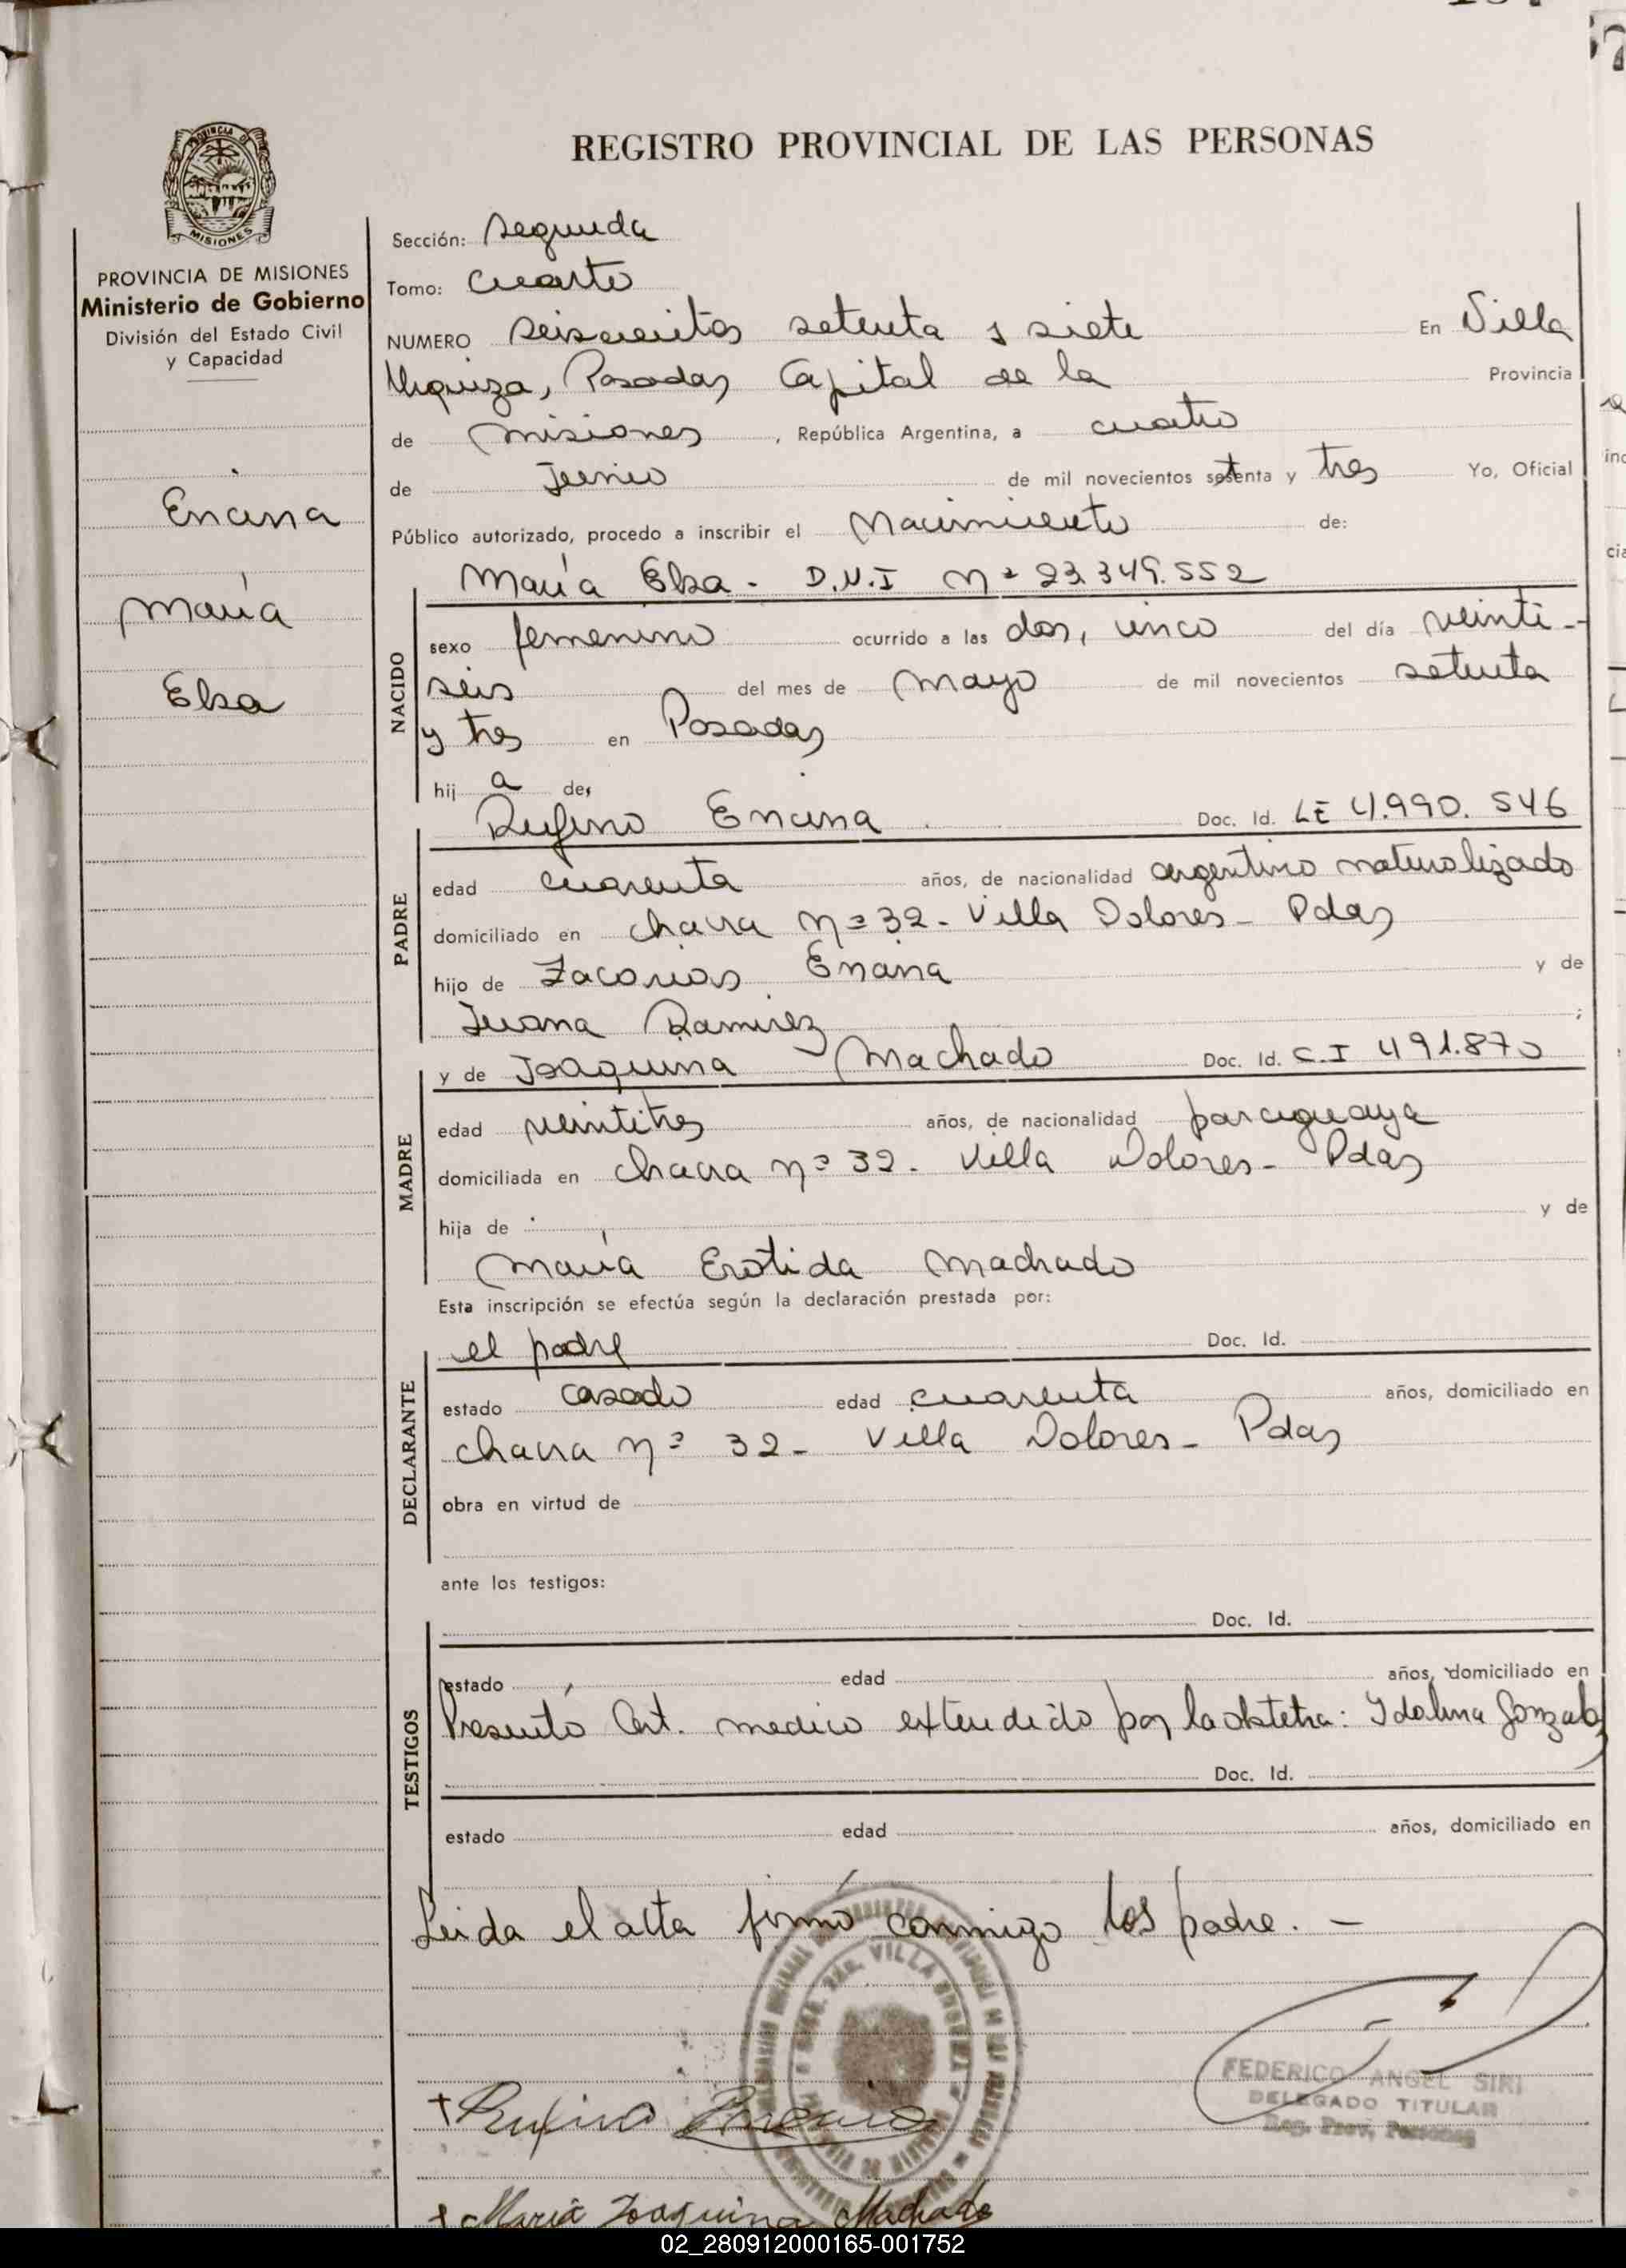 REGISTRO PROVINCIAL DE LAS PERSONAS
MISIONES
PROVINCIA DE MISIONES
Ministerio de Gobierno
División del Estado Civil
y Capacidad
Encina
María
Elsa
Sección: Segunda
Tomo: Cuarto
NUMERO Seiscientos setenta y siete En Villa
Urquiza, Posadas Capital de la Provincia
de Misiones, República Argentina, a cuatro
de Junio de mil novecientos setenta y tres Yo, Oficial
Público autorizado, procedo a inscribir el Nacimiento de:
María Elsa - D.N.I Nº 23.349.552
NACIDO
sexo femenino ocurrido a las dos, cinco del día veinti-
seis del mes de Mayo de mil novecientos setenta
y tres en Posadas
hij a de,
Rufino Encina Doc. Id. LE 4.990.546
PADRE
edad cuarenta años, de nacionalidad argentino naturalizado
domiciliado en chacra Nº 32 - Villa Dolores - Pdas
hijo de Zacarias Encina y de
Juana Ramirez ;
y de Joaquina Machado Doc. Id. C.I 491.870
MADRE
edad veintitres años, de nacionalidad paraguaya
domiciliada en chacra Nº 32 - Villa Dolores - Pdas
hija de y de
María Erotida Machado
Esta inscripción se efectúa según la declaración prestada por:
el padre Doc. Id.
DECLARANTE
estado casado edad cuarenta años, domiciliado en
chacra Nº 32 - Villa Dolores - Pdas
obra en virtud de
ante los testigos:
Doc. Id.
TESTIGOS
estado edad años, domiciliado en
Presentó Cert. medico extendido por la obstetra: Idalina Gonzalez
Doc. Id.
estado edad años, domiciliado en
Leida el acta firmó conmigo los padre. -
VILLA URQUIZA
FEDERICO ANGEL SIRI
DELEGADO TITULAR
Reg. Prov. Personas
+ Rufino Encina
+ María Joaquina Machado
02_280912000165-001752